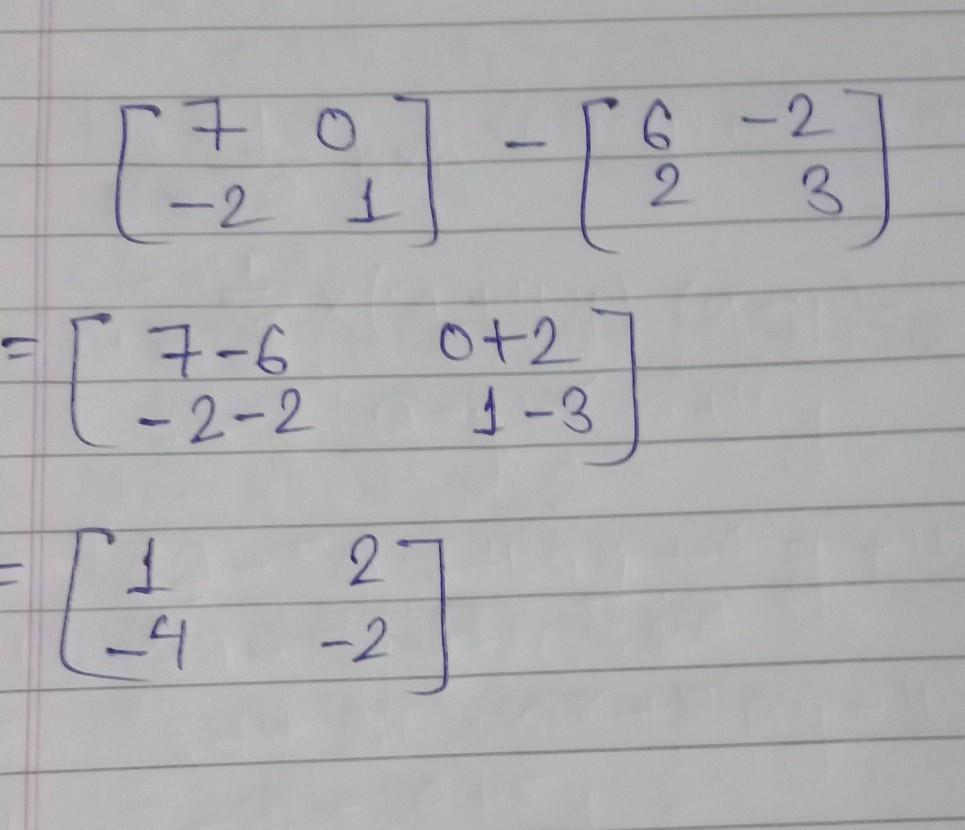 [ 7 0 ] - [ 6 -2 ]
[ -2 1 ] [ 2 3 ]
= [ 7-6 0+2 ]
[ -2-2 1-3 ]
= [ 1 2 ]
[ -4 -2 ]